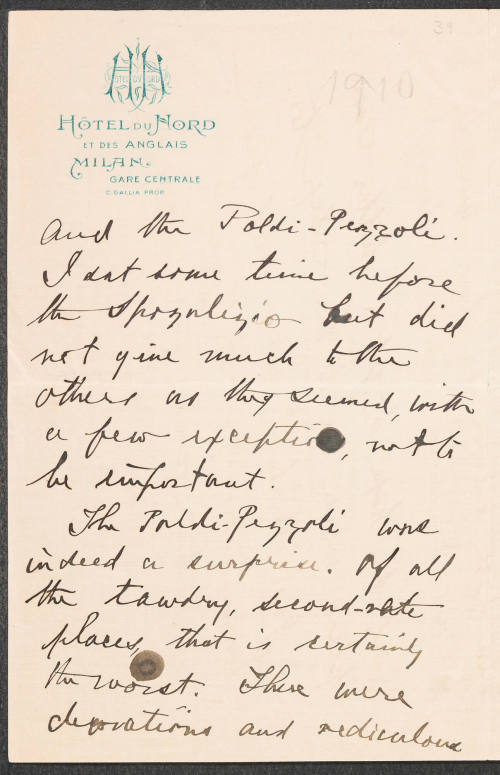 39
1910
HÔTEL DU NORD
HÔTEL DU NORD
ET DES ANGLAIS
MILAN
GARE CENTRALE
C. GALLIA PROP.
and the Poldi-Pezzoli.
I sat some time before
the Spozalizio but did
not give much to the
others as they seemed, with
a few exceptio, not to
be important.
The Poldi-Pezzoli was
indeed a surprise. Of all
the tawdry, second-rate
places, that is certainly
the worst. There were
decorations and rediculous